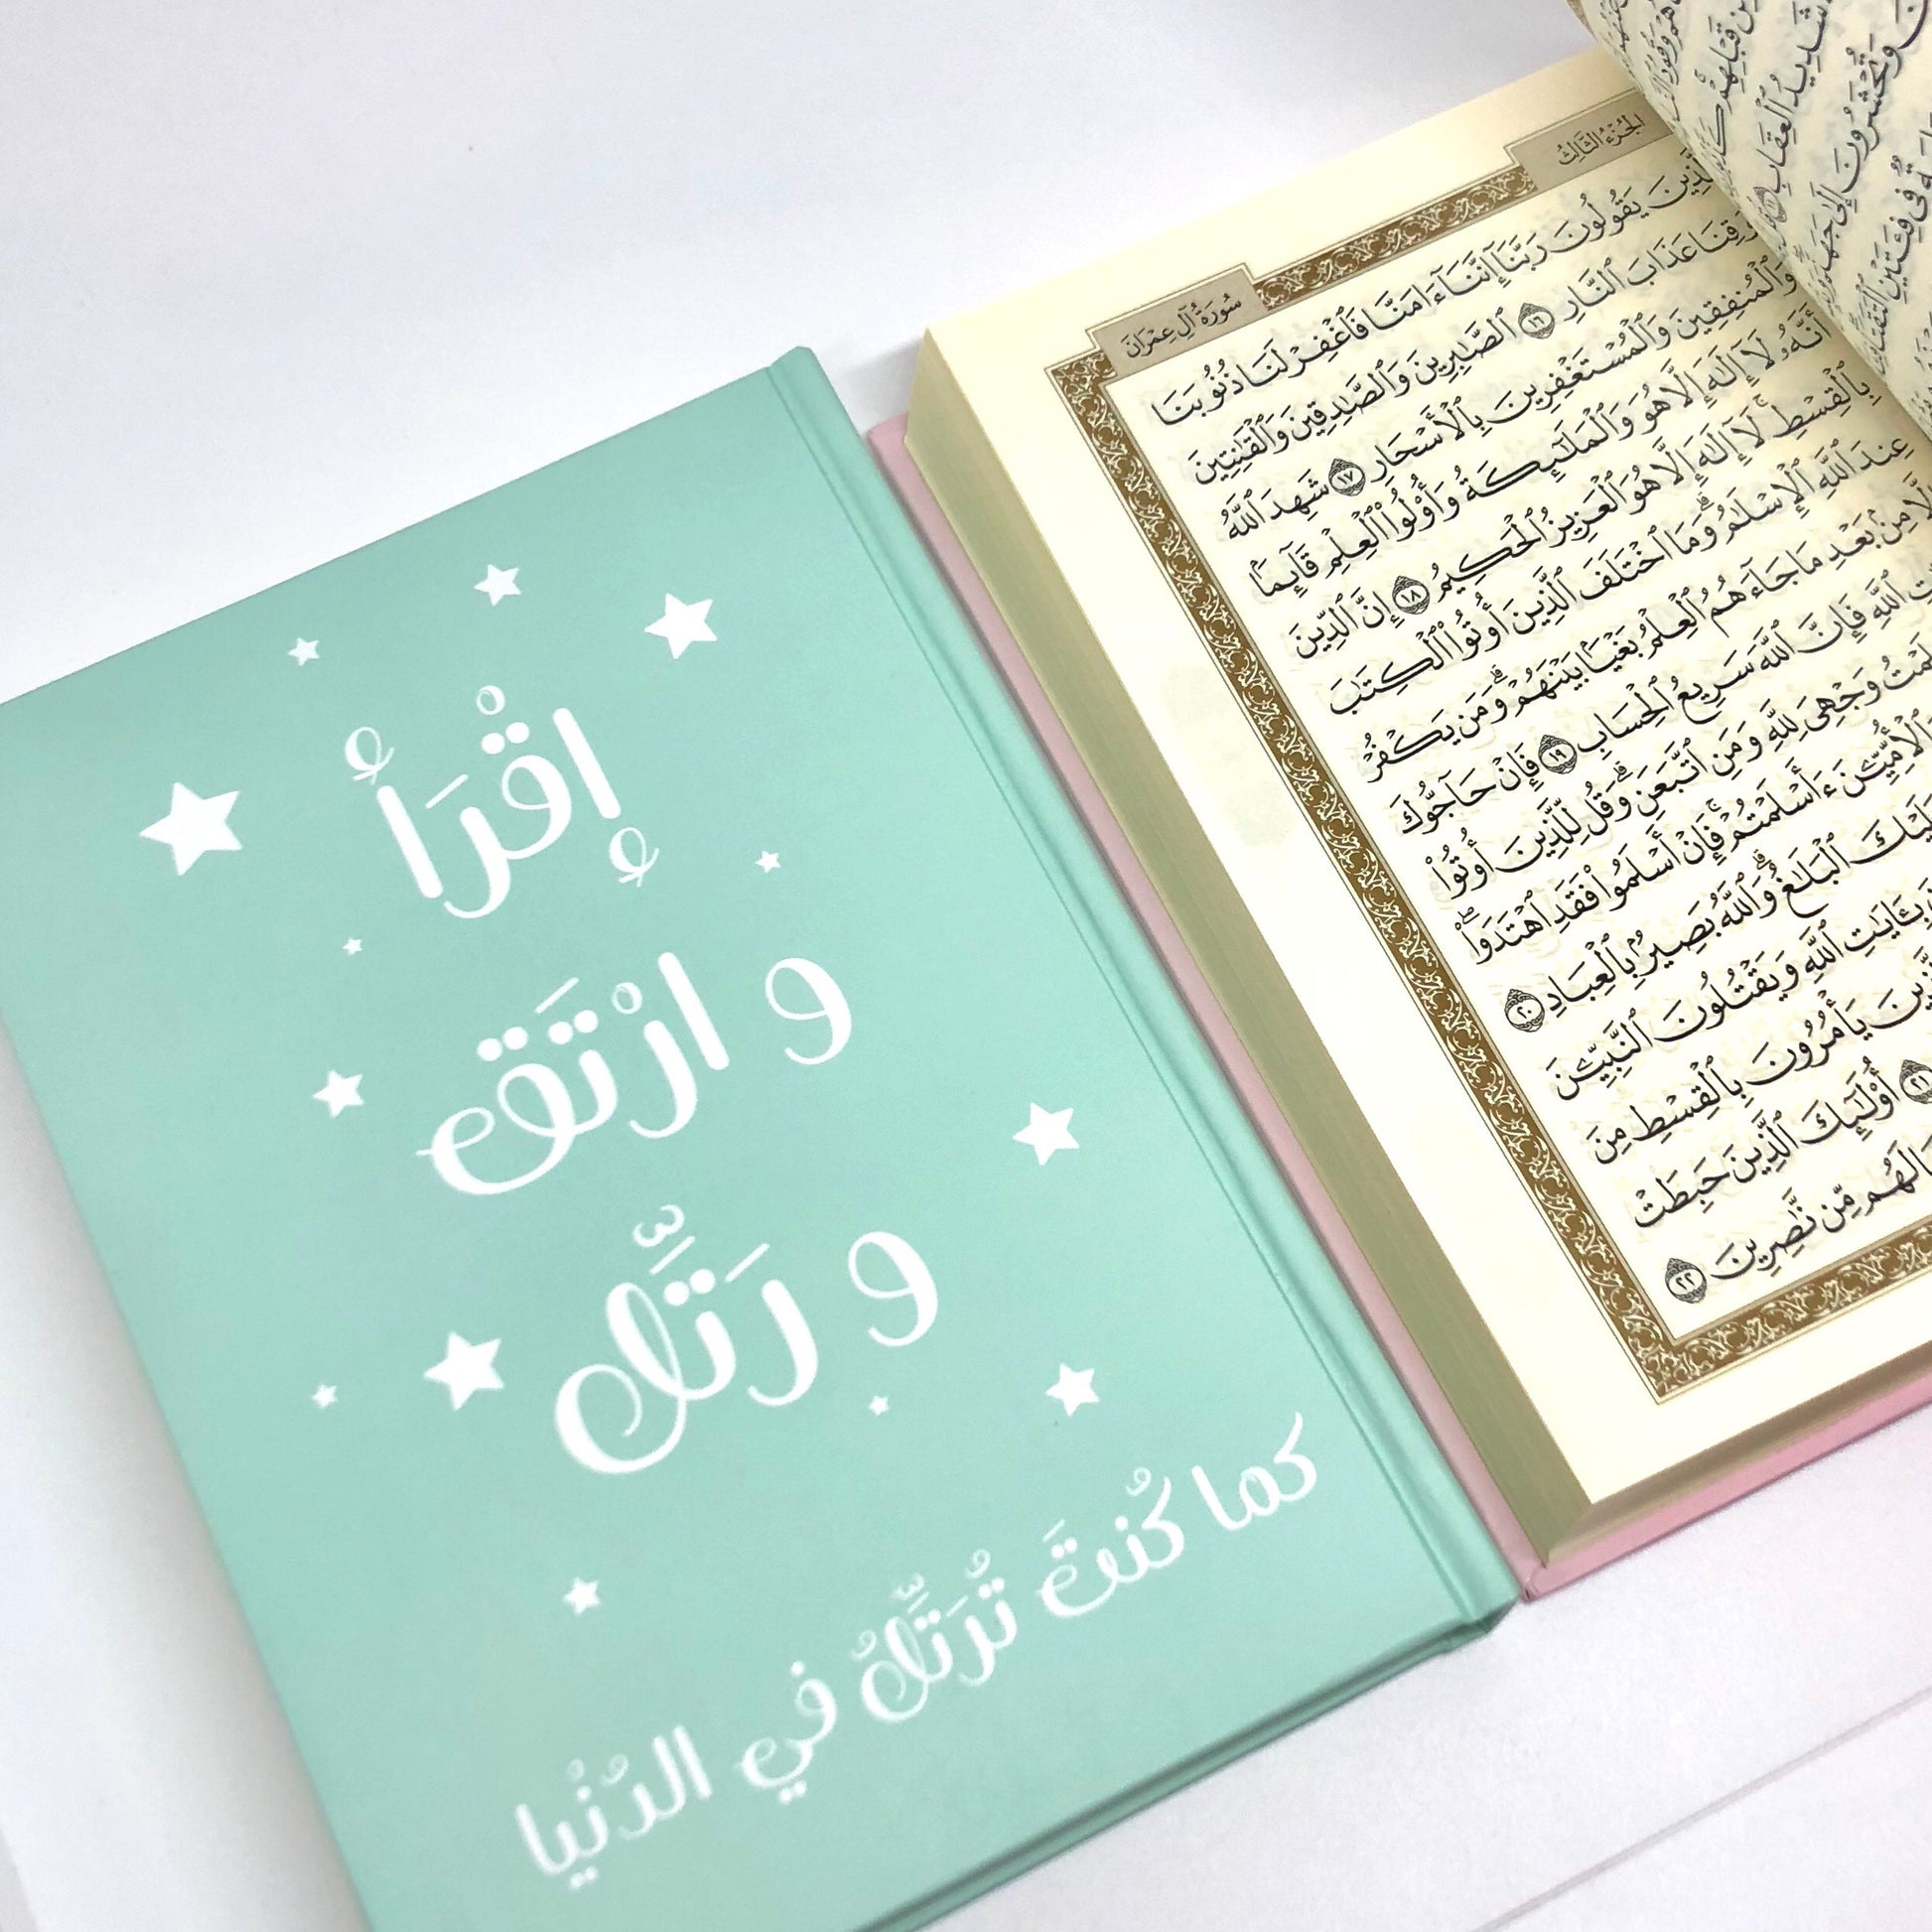 إِقْرَأْ
و ارْتَقِ
و رَتِّلْ
كما كُنتَ تُرَتِّلُ في الدُنْيا
سُورَةُ آلِ عِمْرَانَ
الجُزْءُ الثَّالِثُ
ٱلَّذِينَ يَقُولُونَ رَبَّنَآ إِنَّنَآ ءَامَنَّا فَٱغْفِرْ لَنَا ذُنُوبَنَا
وَقِنَا عَذَابَ ٱلنَّارِ ١٦ ٱلصَّٰبِرِينَ وَٱلصَّٰدِقِينَ وَٱلْقَٰنِتِينَ
وَٱلْمُنفِقِينَ وَٱلْمُسْتَغْفِرِينَ بِٱلْأَسْحَارِ ١٧ شَهِدَ ٱللَّهُ
أَنَّهُۥ لَآ إِلَٰهَ إِلَّا هُوَ وَٱلْمَلَٰٓئِكَةُ وَأُو۟لُوا۟ ٱلْعِلْمِ قَآئِمًۢا
بِٱلْقِسْطِ ۚ لَآ إِلَٰهَ إِلَّا هُوَ ٱلْعَزِيزُ ٱلْحَكِيمُ ١٨ إِنَّ ٱلدِّينَ
عِندَ ٱللَّهِ ٱلْإِسْلَٰمُ ۗ وَمَا ٱخْتَلَفَ ٱلَّذِينَ أُوتُوا۟ ٱلْكِتَٰبَ
إِلَّا مِنۢ بَعْدِ مَا جَآءَهُمُ ٱلْعِلْمُ بَغْيًۢا بَيْنَهُمْ ۗ وَمَن يَكْفُرْ
ٱللَّهِ فَإِنَّ ٱللَّهَ سَرِيعُ ٱلْحِسَابِ ١٩ فَإِنْ حَآجُّوكَ
وَجْهِىَ لِلَّهِ وَمَنِ ٱتَّبَعَنِ ۗ وَقُل لِّلَّذِينَ أُوتُوا۟
ءَأَسْلَمْتُمْ ۚ فَإِنْ أَسْلَمُوا۟ فَقَدِ ٱهْتَدَوا۟ ۖ
ٱلْبَلَٰغُ ۗ وَٱللَّهُ بَصِيرٌۢ بِٱلْعِبَادِ ٢٠
بِـَٔايَٰتِ ٱللَّهِ وَيَقْتُلُونَ ٱلنَّبِيِّـۧنَ
يَأْمُرُونَ بِٱلْقِسْطِ مِنَ
٢١ أُو۟لَٰٓئِكَ ٱلَّذِينَ حَبِطَتْ
لَهُم مِّن نَّٰصِرِينَ ٢٢
شَدِيدُ ٱلْعِقَابِ
وَتُحْشَرُونَ إِلَىٰ
فِى فِئَتَيْنِ ٱلْتَقَتَا